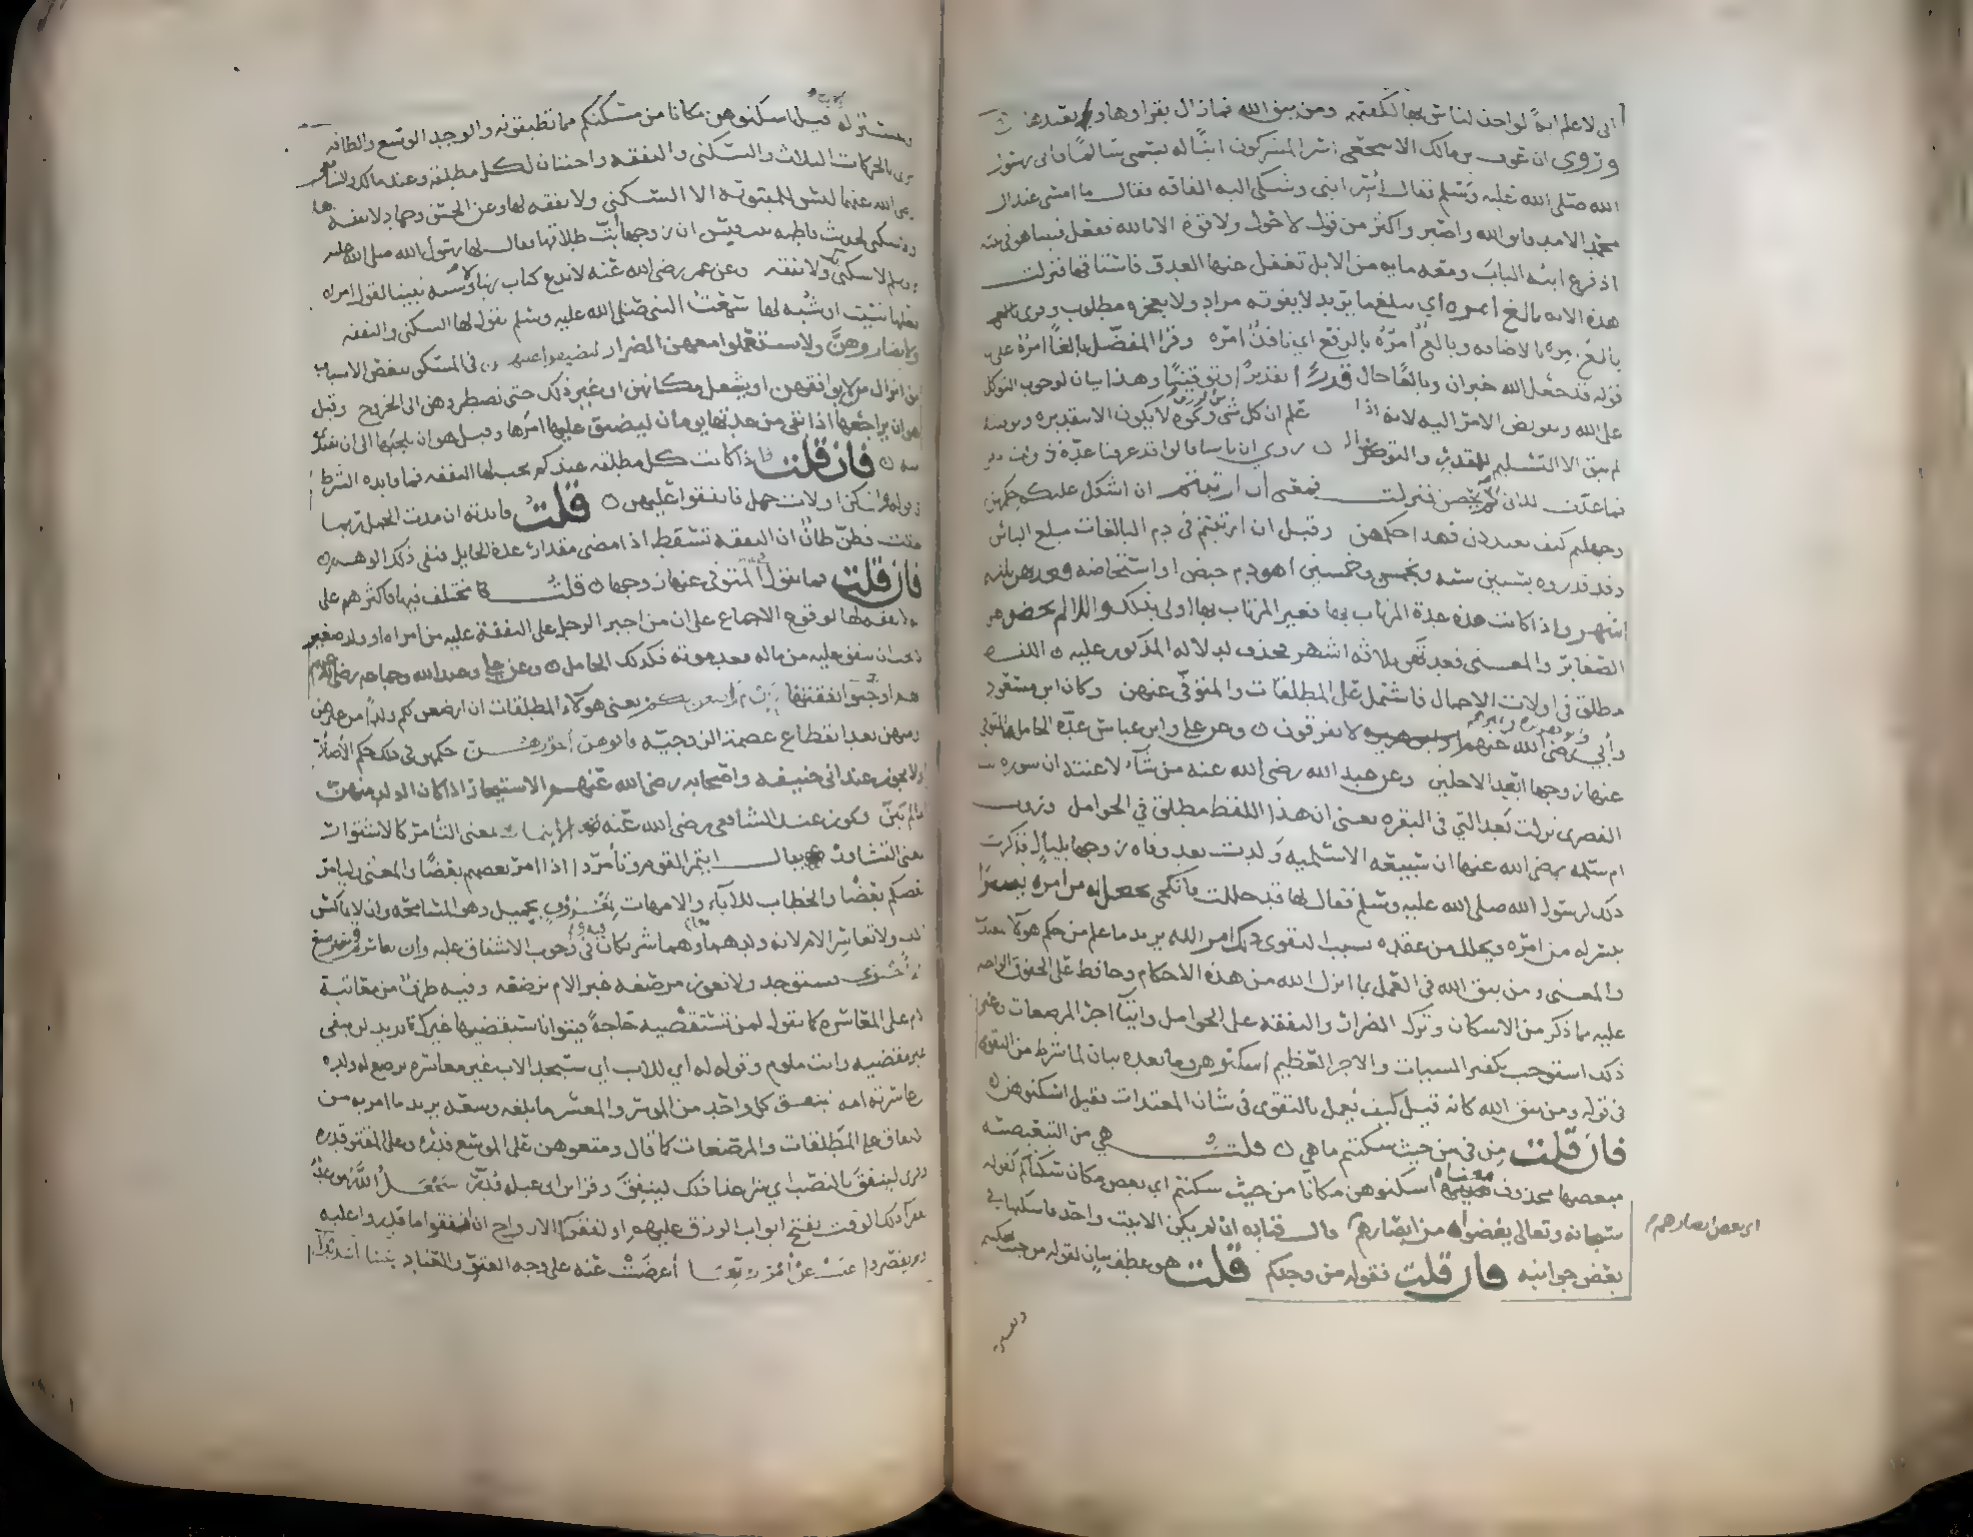 انى لاعلم اية لو اخذ الناس بها لكفتهم ومن يتق الله فما زال يقراوها ويعيدها
وروى ان عوف بن مالك الاشجعى اسر المشركون ابنا له يسمى سالما فاتى رسول
الله صلى الله عليه وسلم فقال أسر ابنى وشكى اليه الفاقة فقال ما امسى عند ال
محمد الا مد فاتق الله واصبر واكثر من قول لا حول ولا قوة الا بالله ففعل فبينا هو فى بيته
اذ قرع ابنه الباب ومعه مايه من الابل تغفل عنها العدو فاستاقها فنزلت
هذه الايه بالغ امره اي يبلغ ما يريد لا يفوته مراد ولا يعجزه مطلوب وقرى بالغ
بالغ امره بالاضافه وبالغ امرُه بالرفع اي نافذ امره وقرا المفضل بالغا امره على
قوله قد جعل الله خبر ان وبالغا حال قدرا تقديرا وتوقيتا وهذا بيان لوجوب التوكل
على الله وتفويض الامر اليه لانه اذا علم ان كل شى من الرزق ونحوه لا يكون الا بتقديره وتوقيته
لم يبق الا التسليم للقدر والتوكل روي ان ناسا قالوا قد عرفنا عدة ذوات
فما عدة اللائى لم يحضن فنزلت فمعنى ان ارتبتم ان اشكل عليكم حكمهن
وجهلتم كيف يعتددن فهذا حكمهن وقيل ان ارتبتم فى دم البالغات مبلغ الياس
وقد قدروه بستين سنه وبخمس وخمسين اهو دم حيض او استحاضه فعدتهن ثلاثه
اشهر واذا كانت هذه عدة المرتاب بها فغير المرتاب بها اولى بذلك واللائى لم يحضن هن
الصغائر والمعنى فعدتهن ثلاثه اشهر فحذف لدلاله المذكور عليه اللفظ
مطلق فى اولات الاحمال فاشتمل على المطلقات والمتوفى عنهن وكان ابن مسعود
وأبي وابو هريره وغيرهم رضى الله عنهم لا يفرقون وعن علي وابن عباس عدة الحامل المتوفى
عنها زوجها ابعد الاجلين وعن عبد الله رضى الله عنه من شآء لاعنته ان سوره
القصرى نزلت بعد التي فى البقره يعنى ان هذا اللفظ مطلق في الحوامل وروت
ام سلمه رضى الله عنها ان سبيعه الاسلميه ولدت بعد وفاه زوجها بليال فذكرت
ذلك لرسول الله صلى الله عليه وسلم فقال لها قد حللت فانكحى يجعل له من امره يسرا
ييسر له من امره ويحلل من عقده بسبب التقوى ذلك امر الله يريد ما علم من حكم هولآ المعتدات
والمعنى ومن يتق الله فى العمل بما انزل الله من هذه الاحكام وحافظ على الحقوق الواجبه
عليه مما ذكر من الاسكان وترك الضرار والنفقه على الحوامل وايتآ اجر المرضعات وغير
ذلك استوجب تكفير السيئات والاجر العظيم اسكنوهن وما بعده بيان لما شرط من التقوى
فى قوله ومن يتق الله كانه قيل كيف نعمل بالتقوى فى شان المعتدات فقيل اسكنوهن
فان قلت من فى من حيث سكنتم ما هي قلت هي من التبعيضيه
مبعضها محذوف معناه اسكنوهن مكانا من حيث سكنتم اي بعض مكان سكناكم كقوله
سبحانه وتعالى يغضوا من ابصارهم قال قتاده ان لم يكن الا بيت واحد فاسكنها فى
اى بعض ابصارهم
بعض جوانبه فان قلت فقوله من وجدكم قلت هو عطف بيان لقوله من حيث سكنتم
وتفسير
وتفسير له قيل اسكنوهن مكانا من مسكنكم مما تطيقونه والوجد الوسع والطاقه
قرى بالحركات الثلاث والسكنى والنفقه واجبتان لكل مطلقه وعند مالك والشافعى
رضى الله عنهما ليس للمبتوته الا السكنى ولا نفقه لها وعن الحسن وحماد لا نفقه لها
ولا سكنى لحديث فاطمه بنت قيس ان زوجها أبت طلاقها فقال لها رسول الله صلى الله عليه
وسلم لا سكنى ولا نفقه وعن عمر رضى الله عنه لا ندع كتاب ربنا وسنه نبينا لقول امراه
لعلها نسيت او شبه لها سمعت النبى صلى الله عليه وسلم يقول لها السكنى والنفقه
ولا تضاروهن ولا تستعملوا معهن الضرار لتضيقوا عليهن فى المسكن ببعض الاسباب
من انزال من لا يوافقهن او يشغل مكانهن او غير ذلك حتى تضطروهن الى الخروج وقيل
هو ان يراجعها اذا بقى من عدتها يومان ليضيق عليها امرها وقيل هو ان يلجئها الى ان تفتدى
منه فان قلت فاذا كانت كل مطلقه عندكم يجب لها النفقه فما فايده الشرط
فى قوله وان كن اولات حمل فانفقوا عليهن قلت فايدته ان مدت الحمل ربما
طالت فظن ظان ان النفقه تسقط اذا مضى مقدار عدة الحايل فنفى ذلك الوهم
فان قلت فما تقول فى الحامل المتوفى عنها زوجها قلت مختلف فيها فاكثرهم على
لا نفقه لها لوقوع الاجماع على ان من اجبر الرجل على النفقة عليه من امراه او ولد صغير
لا يجب ان ينفق عليه من ماله بعد موته فكذلك الحامل وعن علي وعبد الله وجماعه رضى الله عنهم
انهم اوجبوا نفقتها فان ارضعن لكم يعنى هولآء المطلقات ان ارضعن لكم ولدا من غيرهن
او منهن بعد انقطاع عصمة الزوجيه فاتوهن أجورهن حكمهن فى ذلك حكم الأظآر
ولا يجوز عند ابى حنيفه واصحابه رضى الله عنهم الاستيجار اذا كان الولد منهن
ما لم تبن ويجوز عند الشافعى رضى الله عنه الايتمار بمعنى التآمر كالاشتوار
بمعنى التشاور يقال ايتمر القوم وتآمروا اذا امر بعضهم بعضا والمعنى وليامر
بعضكم بعضا والخطاب للآباء والامهات بمعروف بجميل وهو المسامحه وان لا يماكس
الاب ولا تعاسر الام لانه ولدهما وهما شريكان فيه وفى وجوب الاشفاق عليه وان تعاسرتم فسترضع
له أخرى فستوجد ولا تعوز مرضعه غير الام ترضعه وفيه طرف من معاتبة
الام على المعاسره كما تقول لمن تستقضيه حاجة فيتوانا سيقضيها غيرك تريد لن تبقى
غير مقضيه وانت ملوم وقوله له اي للاب اي سيجد الاب غير معاسره ترضع له ولده
ان عاسرته امه لينفق كل واحد من الموسر والمعسر ما بلغه وسعه يريد ما امر به من
الانفاق على المطلقات والمرضعات كما قال ومتعوهن على الموسع قدره وعلى المقتر قدره
وقرى لينفق بالنصب اي شرعنا ذلك لينفق وقرا ابن ابى عبله قُدِّر سيجعل الله موعد
لفقرآ ذلك الوقت بفتح ابواب الرزق عليهم او لفقرآ الازواج ان انفقوا ما قدروا عليه
ولم يقصروا عتت عن امر ربها أعرضت عنه على وجه العتو والعناد حسابا شديدا